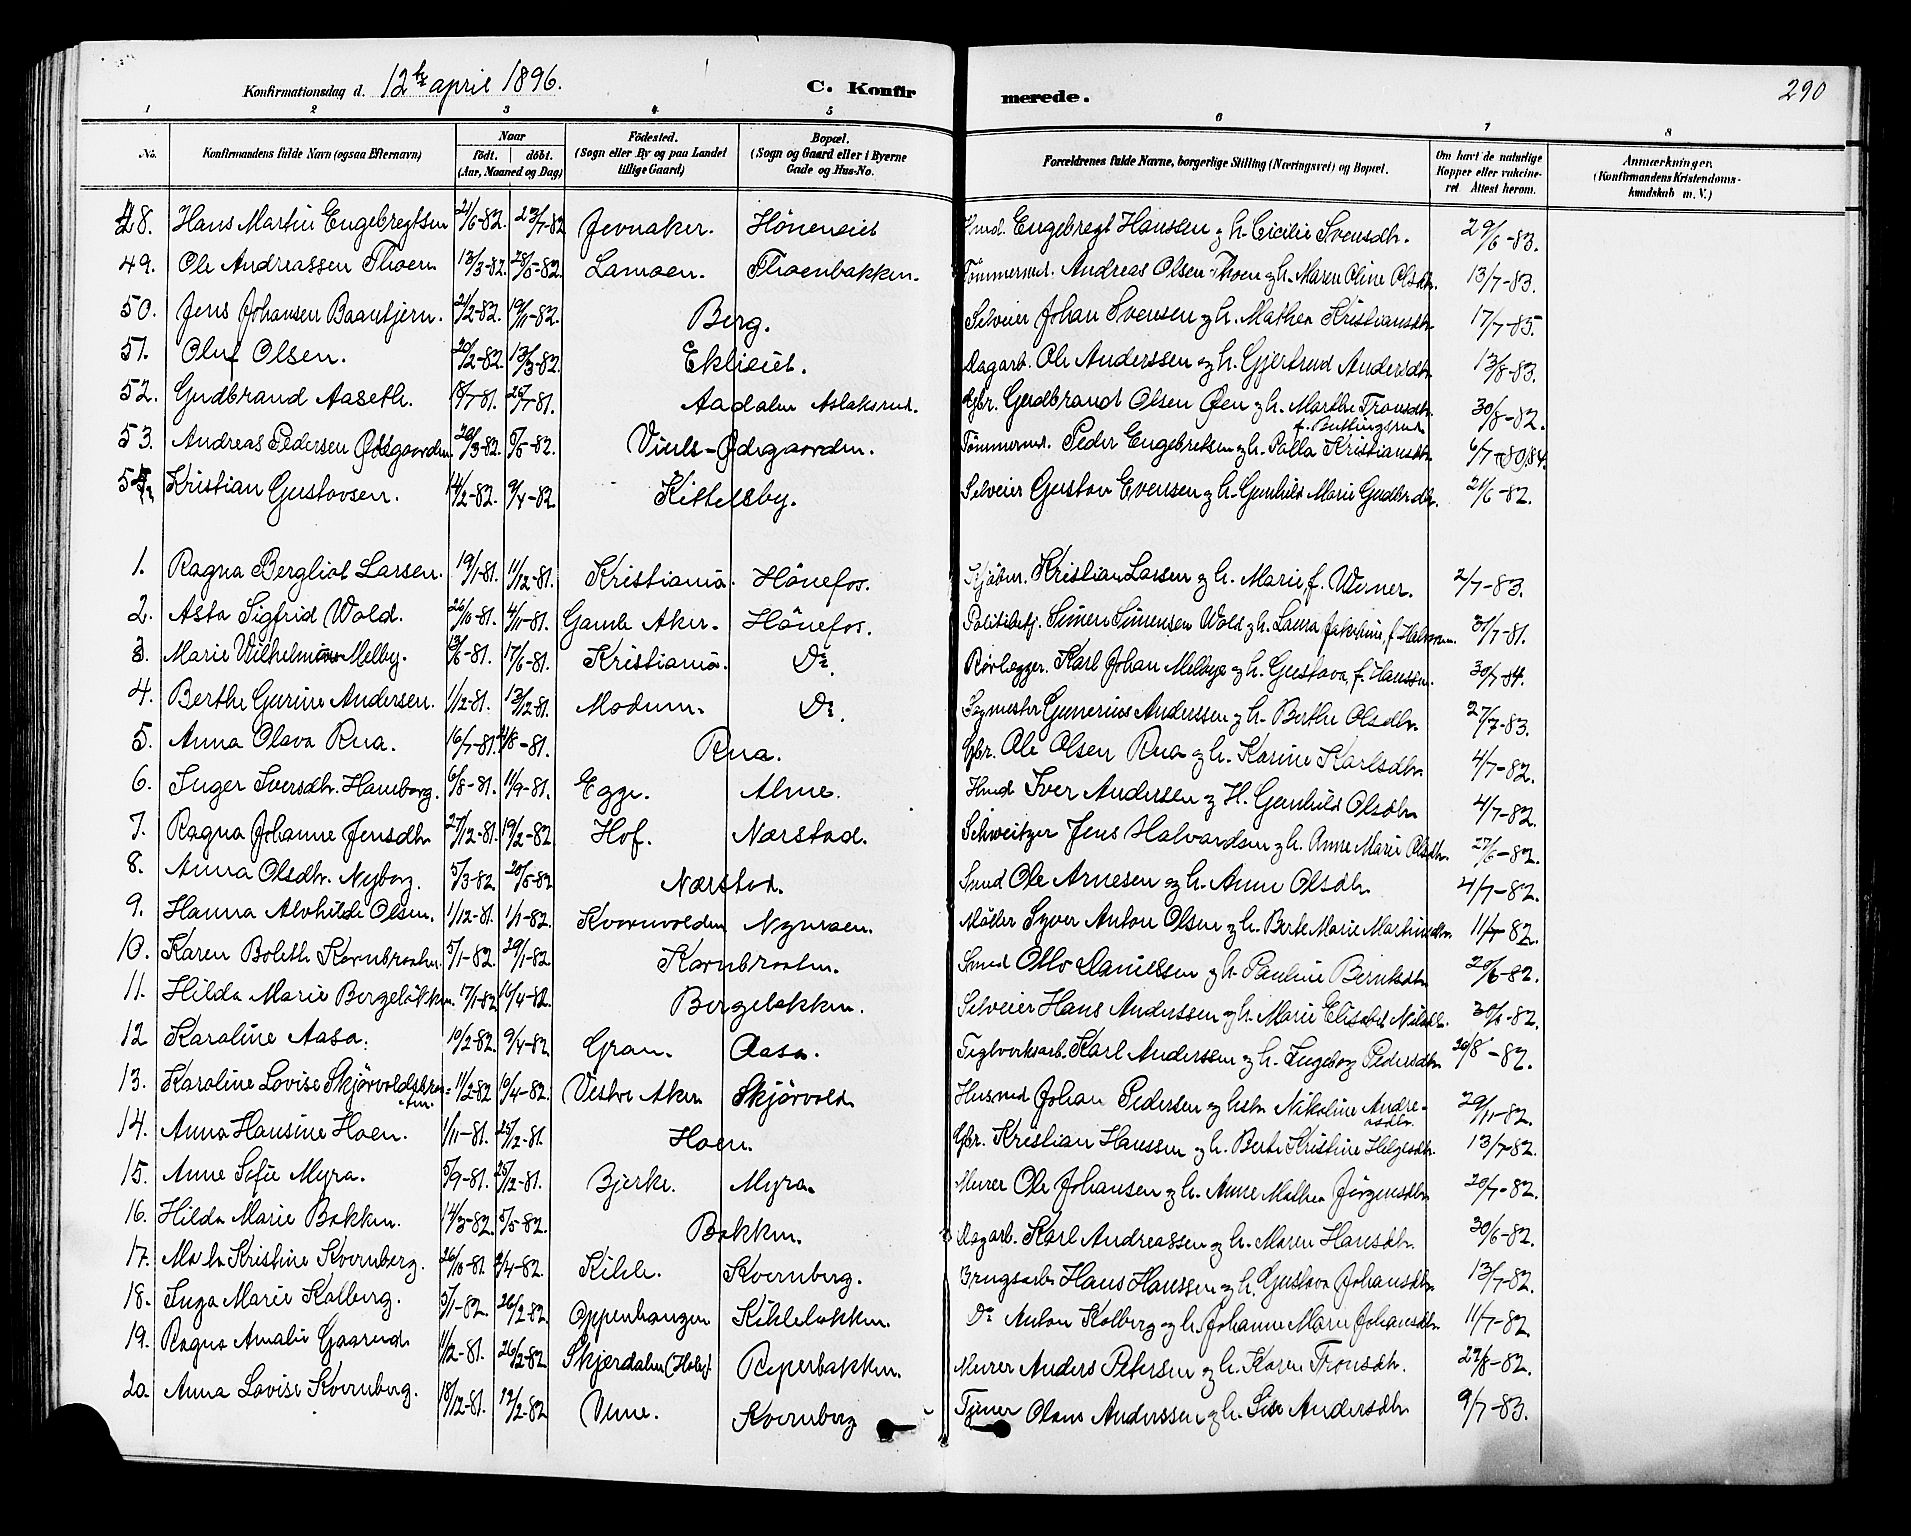 Konfirmationsdag d. 12te april 1896. C. Konfirmerede. 290
1 2 3 4 5 6 7 8
No. Konfirmandens fulde Navn (ogsaa Efternavn) Naar födt. döbt. (Aar, Maaned og Dag) Födested. (Sogn eller By og paa Landet tillige Gaard) Bopæl. (Sogn og Gaard eller i Byerne Gade og Hus-No. Forældrenes fulde Navne, borgerlige Stilling (Næringsvei) og Bopæl. Om havt de naturlige Kopper eller vakcineret Attest herom. Anmærkninger. (Konfirmandens Kristendomskundskab m. V.)
48. Hans Martin Engebregtsen 21/6-82. 23/7-82 Jevnaker. Höneneiet Hmd. Engebregt Hanssen og h. Cicilie Svensdtr. 29/6-83.
49. Ole Andreassen Thoen 13/3-82. 28/5-82. Lamoen. Thoenbakken. Tömmermd. Andreas Olsen Thoen og h. Maren Oline Olsdtr. 13/7-83.
50. Jens Johansen Baantjern. 21/2-82. 19/11-82. Berg. Selveier Johan Svensen og h. Mathea Kristiansdtr 17/7-85.
51. Oluf Olsen. 20/2-82. 13/3-82. Eklieiet. Dagarb. Ole Anderssen og h. Gjertrud Andersdtr 13/8-83.
52. Gudbrand Aaseth. 18/7-81. 26/7-81. Aadalen Aslaksrud. Gbr. Gudbrand Olsen Öen og h. Marthe Tronsdtr. 30/8-82.
53. Andreas Pedersen Ödegaarden 20/3-82. 5/5-82. Viul-Ödegaarden. Tömmermd. Peder Engebretsen og h. Pella Kristiansdtr 6/7-80,84.
54. Kristian Gustavsen. 14/2-82. 9/4-82. Kittelsby. Selveier Gustav Evensen og h. Gunhild Marie Gudbrdtr. 21/6-82.
1. Ragna Bergliot Larsen. 19/1-81. 11/12-81. Kristiania. Hönefos. Kjöbm. Kristian Larsen og h. Marie, f. Werner. 2/7-83.
2. Asta Sigfrid Wold. 26/10-81. 4/11-81. Gamle Aker. Hönefos. Politibetj. Simen Simensen Wold og h. Laura Jakobine, f. 31/7-81.
3. Marie Wilhelmine Melby. 13/6-81. 17/6-81. Kristiania. Do Rörlægger. Karl Johan Melbye og h. Gustava, f. Hanssen. 30/7-84.
4. Berthe Gurine Andersen. 1/12-81. 13/12-81. Modum. Do. Sagmester Gunerius Anderssen og h. Berthe Olsdtr. 27/7-83.
5. Anna Olava Rua. 16/7-81. 21/8-81. Rua. Gbr. Ole Olsen Rua og h. Karine Karlsdtr 4/7-82.
6. Inger Iversdtr. Hamborg. 6/8-81. 11/9-81. Egge. Alme. Hmd Iver Andersen og H. Gunhild Olsdtr 4/7-82.
7. Ragna Johanne Jensdtr 27/12-81. 19/2-82. Hof. Nærstad. Schweitzer Jens Halvardsen og h. Anne Marie Olsdtr. 27/6-82.
8. Anna Olsdtr. Nyborg. 5/3-82. 20/5-82 Nærstad. Smed Ole Arnesen og h. Anne Olsdtr 4/7-82.
9. Hanna Alvhilde Olsen. 1/12-81. 1/1-82. Kvernvolden Nymoen. Möller Syver Anton Olsen og h. Berte Marie Martinsdtr. 11/7-82.
10. Karen Bolette Kornbraaten. 5/1-82. 29/1-82. Kornbraaten. Smed Otto Danielsen og h. Pauline Berntsdtr 20/6-82.
11. Hilda Marie Bergelökken. 17/1-82. 16/4-82. Bergelökken. Selveier Hans Anderssen og h. Marie Elisabet Nilsdtr. 30/6-82.
12 Karoline Aasa. 10/2-82. 9/4-82 Gran. Aasa. Teglverksarb. Karl Anderssen og h. Ingeborg Pedersdtr 26/8-82.
13. Karoline Lovise Skjörvoldsbraaten. 11/2-82 10/4-82. Vestre Aker Skjörvold. Husmd Johan Pedersen og hstr Nikoline Andreasdtr. 29/11-82.
14. Anna Hansine Hoen. 1/11-81. 25/12-81. Hoen. Gbr. Kristian Hanssen og h. Berte Kristine Helgesdtr. 13/7-82.
15. Anne Sofie Myra. 5/9-81. 25/12-81. Bjerke. Myra. Murer Ole Johansen og h. Anne Mathea Jörgensdtr 20/7-82.
16. Hilda Marie Bakken. 14/3-82. 5/5-82. Bakken. Dagarb. Karl Andreassen og h. Maren Hansdtr. 30/6-82.
17. Kristine Kvernberg. 26/10-81. 2/4-82. Kihle. Kvernberg. Brugsarb. Hans Hanssen og h. Gustava Johansdtr 13/7-82.
18. Inga Marie Kolberg. 5/1-82. 26/2-82. Oppenhaugen Kihlelökken. Do Anton Kolberg og h. Johanne Marie Johansdtr. 11/7-82.
19. Ragna Amalie Gaarud 11/2-81. 26/2-82. Skjerdalen (Hole). Reperbakken. Murer Anders Petersen og h. Karen Tronsdtr. 29/8-82.
20. Anna Lovise Kvernberg. 18/12-81. 12/2-82. Vine. Kvernberg Tjener Olaus Anderssen og h. Lise Andersdtr 9/7-83.